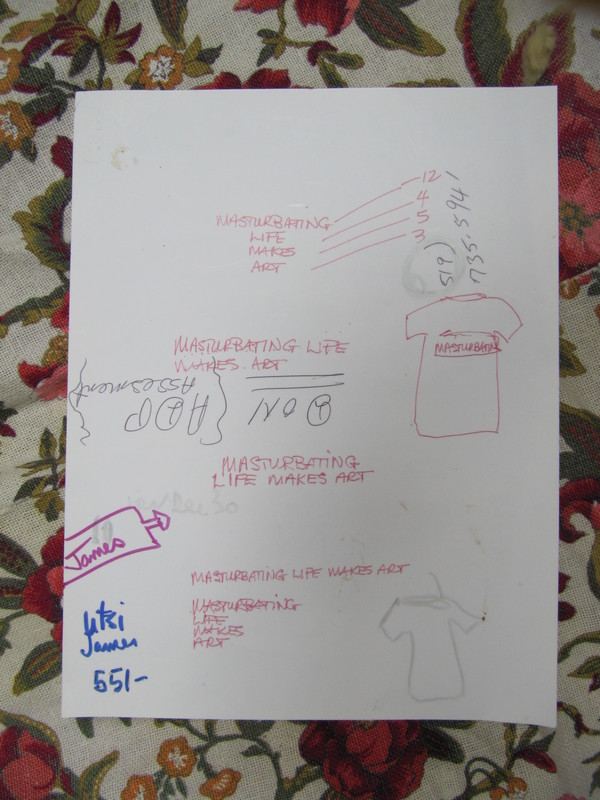 MASTURBATING
LIFE
MAKES
ART
12
4
5
3
519)
735-5941
MASTURBATING LIFE
MAKES ART
MASTURBATING
ADP
Assesment
MASTURBATING
LIFE MAKES ART
James
MASTURBATING LIFE MAKES ART
MASTURBATING
LIFE
MAKES
ART
James
551-